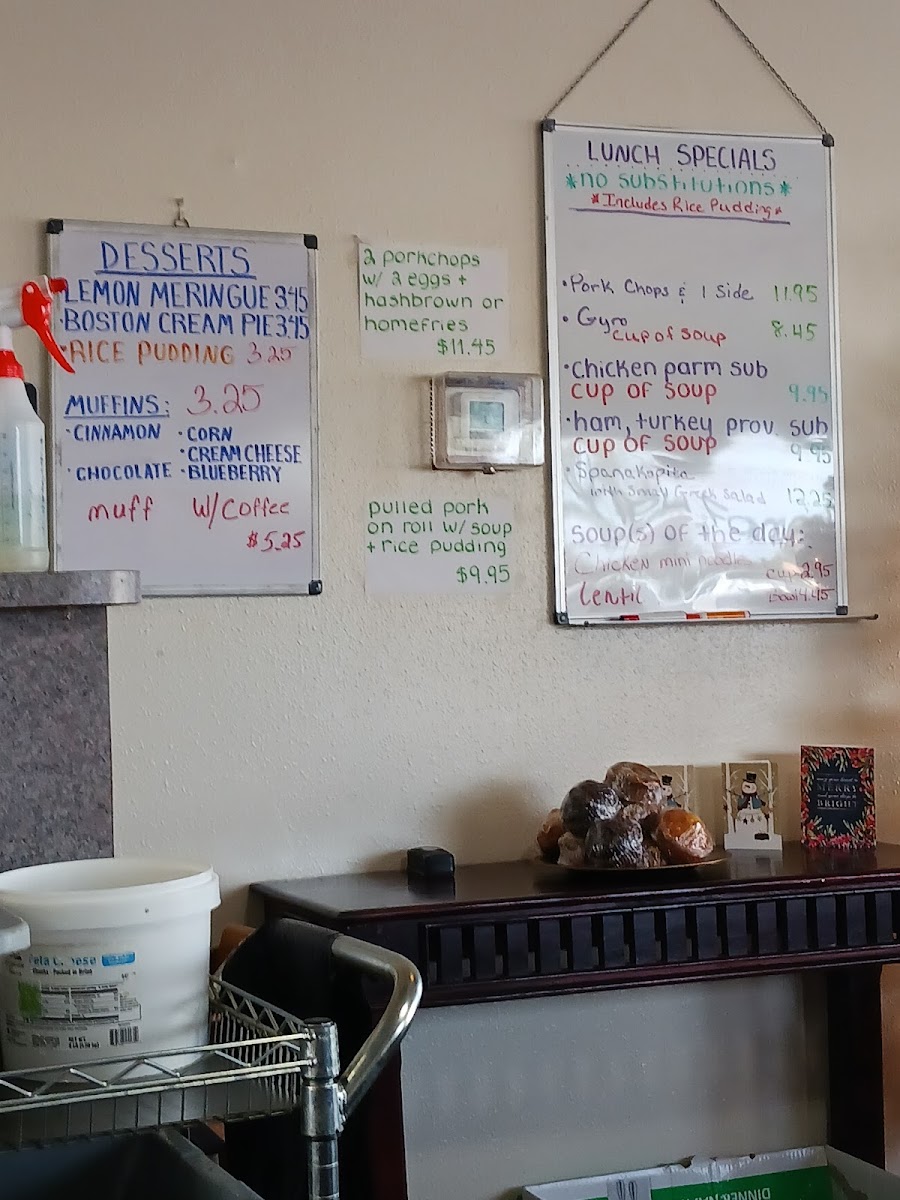 DESSERTS
LEMON MERINGUE 3.45
·BOSTON CREAM PIE 3.45
·RICE PUDDING 3.25
MUFFINS: 3.25
·CINNAMON ·CORN
·CREAM CHEESE
·CHOCOLATE ·BLUEBERRY
muff w/coffee
$5.25
2 porkchops
w/ 2 eggs +
hashbrown or
homefries
$11.45
pulled pork
on roll w/ soup
+ rice pudding
$9.95
LUNCH SPECIALS
*no substitutions*
*Includes Rice Pudding*
·Pork Chops & 1 Side 11.95
·Gyro
cup of soup 8.45
·Chicken parm sub
cup of soup 9.95
·ham, turkey prov sub
cup of soup 9.95
·Spanakapita
with small Greek salad 12.25
soup(s) of the day:
Chicken mini noodles cup 2.95
lentil bowl 4.45
MERRY
and
BRIGHT
Chunks - Packed in Brine
DINNER